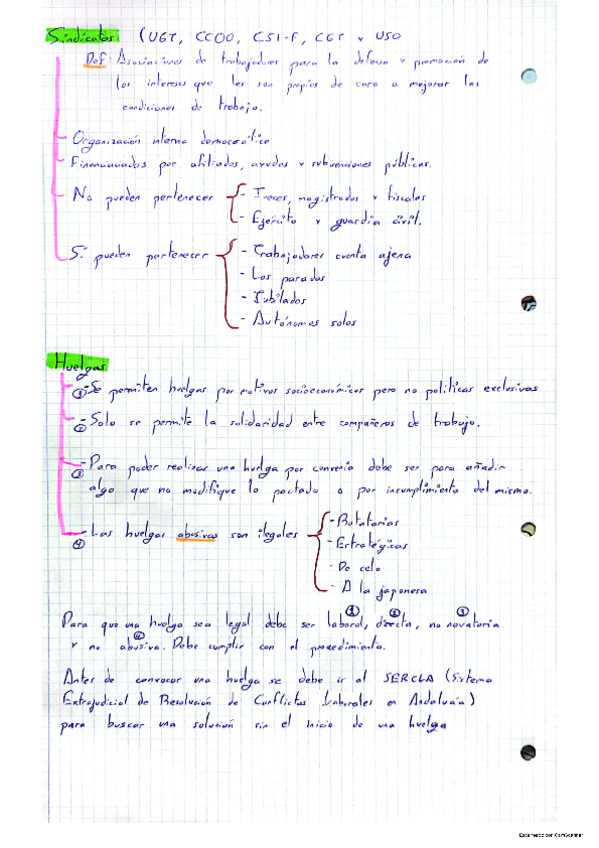 Sindicatos (UGT, CCOO, CSI-F, CGT y USO
Def: Asociaciones de trabajadores para la defensa y promoción de
los intereses que les son propios de cara a mejorar las
condiciones de trabajo.
- Organización interna democrática
- Financiados por afiliados, ayudas y subvenciones públicas.
- No pueden pertenecer - Jueces, magistrados y fiscales
- Ejército y guardia civil.
- Sí pueden pertenecer - Trabajadores cuenta ajena
- Los parados
- Jubilados
- Autónomos solos
Huelgas
① - Se permiten huelgas por motivos socioeconómicos pero no políticas exclusivas
② - Solo se permite la solidaridad entre compañeros de trabajo.
③ - Para poder realizar una huelga por convenio debe ser para añadir
algo que no modifique lo pactado o por incumplimiento del mismo.
④ - Las huelgas abusivas son ilegales - Rotatorias
- Estratégicas
- De celo
- A la japonesa
Para que una huelga sea legal debe ser laboral, ① directa, ② no novatoria ③
y no abusiva. ④ Debe cumplir con el procedimiento.
Antes de convocar una huelga se debe ir al SERCLA (Sistema
Extrajudicial de Resolución de Conflictos Laborales en Andalucía)
para buscar una solución sin el inicio de una huelga
Escaneado con CamScanner